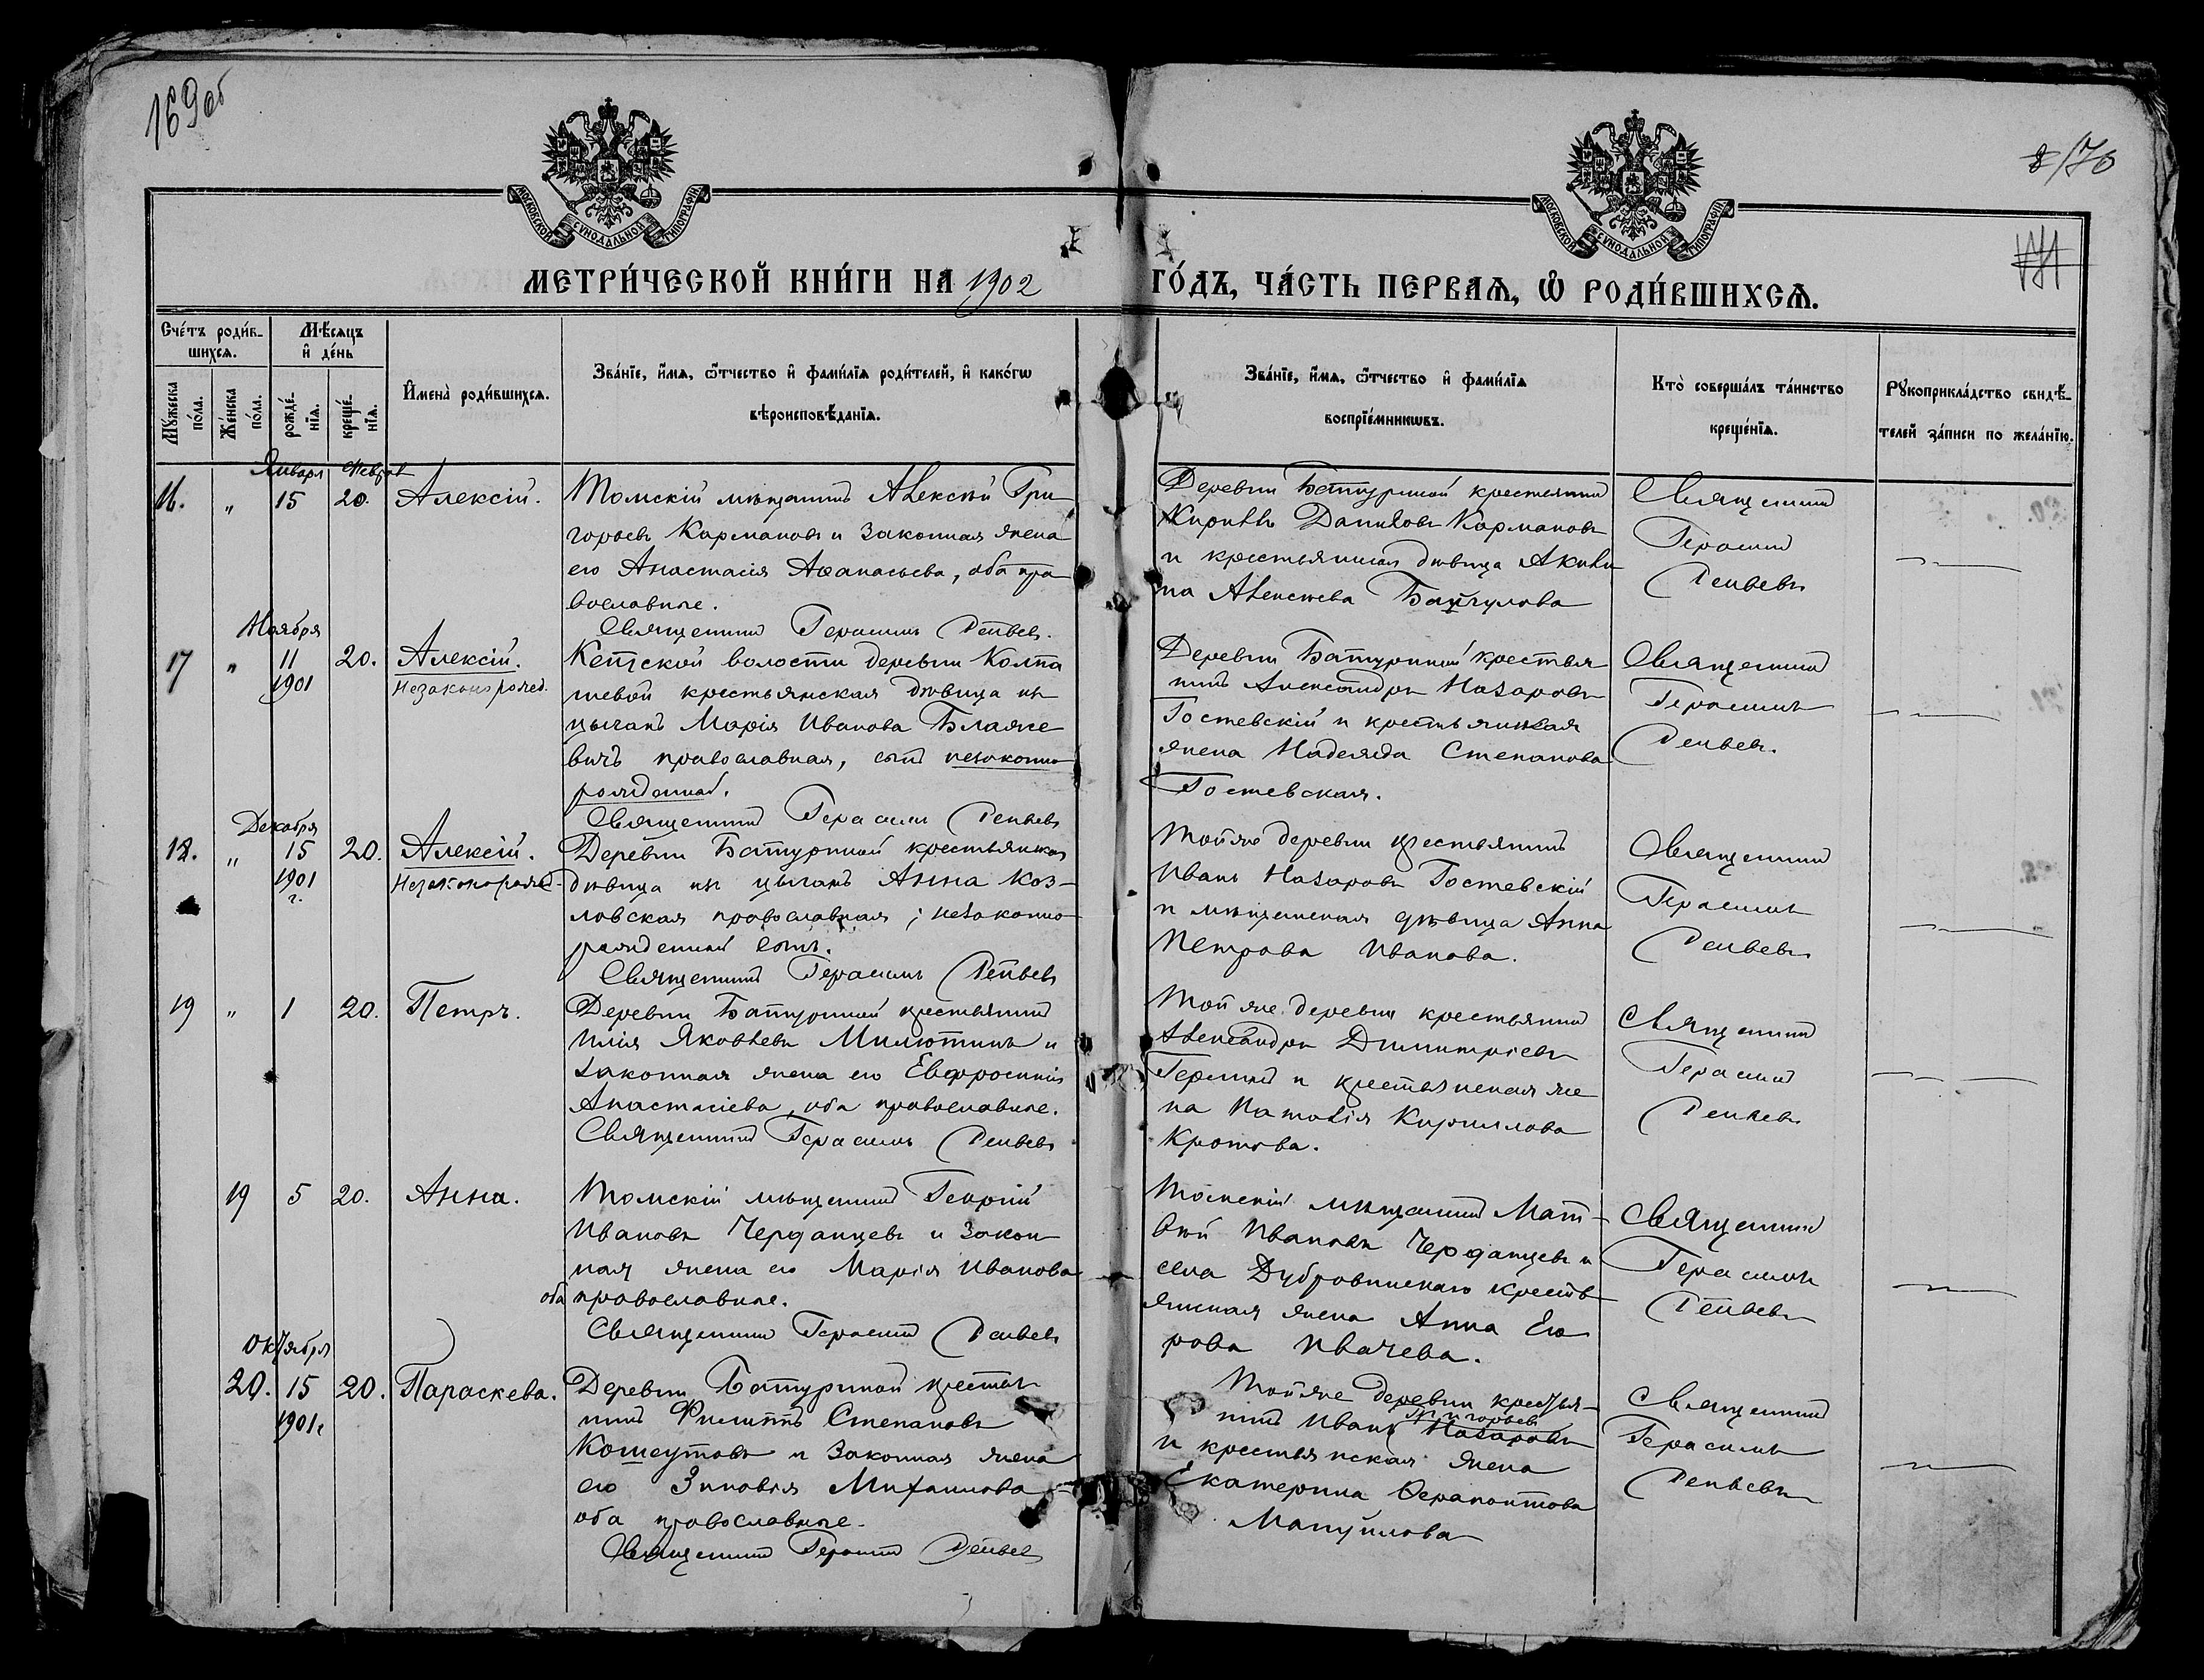 169об
170
МОСКОВСКОЙ СѴНОДАЛЬНОЙ ТИПОГРАФІИ
МОСКОВСКОЙ СѴНОДАЛЬНОЙ ТИПОГРАФІИ
МЕТРИ́ЧЕСКОЙ КНИ́ГИ НА 1902 ГО́ДЪ, ЧА́СТЬ ПЕ́РВАѦ, Ѡ РОДИ́ВШИХСѦ.
Сче́тъ роди́в-
шихсѧ.
Мѣ́сѧцъ
и҆ де́нь
Мꙋ́жеска по́ла.
Же́нска по́ла.
рожде́-нїѧ.
креще́-нїѧ.
И҆мена̀ роди́вшихсѧ.
Зва́нїе, и҆́мѧ, ѻ҆́тчество и҆ фами́лїѧ роди́телей, и҆ како́гѡ
вѣроисповѣ́данїѧ.
Зва́нїе, и҆́мѧ, ѻ҆́тчество и҆ фами́лїѧ
воспрїе́мникѡвъ.
Кто̀ соверша́лъ та́инство
креще́нїѧ.
Рꙋкоприкла́дство свидѣ́-
телей за́писи по жела́нїю.
Января Феврал
16. " 15 20. Алексій.
Томскій мѣщанинъ Алексѣй Гри-
горьевъ Кармановъ и законная жена
его Анастасія Аѳанасьева, оба пра-
вославные.
Священникъ Герасимъ Репьевъ.
Деревни Батуриной крестьянинъ
Кириллъ Даниловъ Кармановъ
и крестьянская дѣвица Акили-
на Алексѣева
Священникъ
Герасимъ
Репьевъ
Ноября
17 " 11 20. Алексій.
1901 незаконорожд.
Кетской волости деревни Колпа
шевой крестьянская дѣвица изъ
цыганъ Марія Иванова Блаже
вичъ православная, сынъ незаконно
рожденный.
Священникъ Герасимъ Репьевъ
Деревни Батуриной крестья
нинъ Александръ Назаровъ
Гостевскій и крестьянская
жена Надежда Степанова
Гостевская.
Священникъ
Герасимъ
Репьевъ.
Декабря
18. " 15 20. Алексій.
1901 г. Незаконорожд.
Деревни Батуриной крестьянская
дѣвица изъ цыганъ Анна Коз-
ловская православная; незаконно-
рожденный сынъ.
Священникъ Герасимъ Репьевъ
Той же деревни крестьянинъ
Иванъ Назаровъ Гостевскій
и мѣщанская дѣвица Анна
Петрова Иванова.
Священникъ
Герасимъ
Репьевъ
19 " 1 20. Петръ.
Деревни Батуриной крестьянинъ
Илія Яковлевъ Милютинъ и
законная жена его Евфросинія
Анастасіева, оба православные.
Священникъ Герасимъ Репьевъ
Той же деревни крестьянинъ
Александръ Димитріевъ
и крестьянская же
на Наталія Кириллова
Кротова.
Священникъ
Герасимъ
Репьевъ
19 5 20. Анна.
Томскій мѣщанинъ Георгій
Ивановъ Черданцевъ и закон-
ная жена его Марія Иванова
оба православные.
Священникъ Герасимъ Репьевъ
Томскій мѣщанинъ Мат-
вѣй Ивановъ Черданцевъ и
села Дубровинскаго кресть-
янская жена Анна Его
рова Ивачева.
Священникъ
Герасимъ
Репьевъ
Октября
20. 15 20. Параскева.
1901г
Деревни Батуриной крестья
нинъ Филиппъ Степановъ
Кошеутовъ и законная жена
его Зиновія Михаилова
оба православные.
Священникъ Герасимъ Репьевъ
Той же деревни крестья-
нинъ Иванъ Назаровъ
Григорьевъ
и крестьянская жена
Екатерина Ѳерапонтова
Мануйлова
Священникъ
Герасимъ
Репьевъ